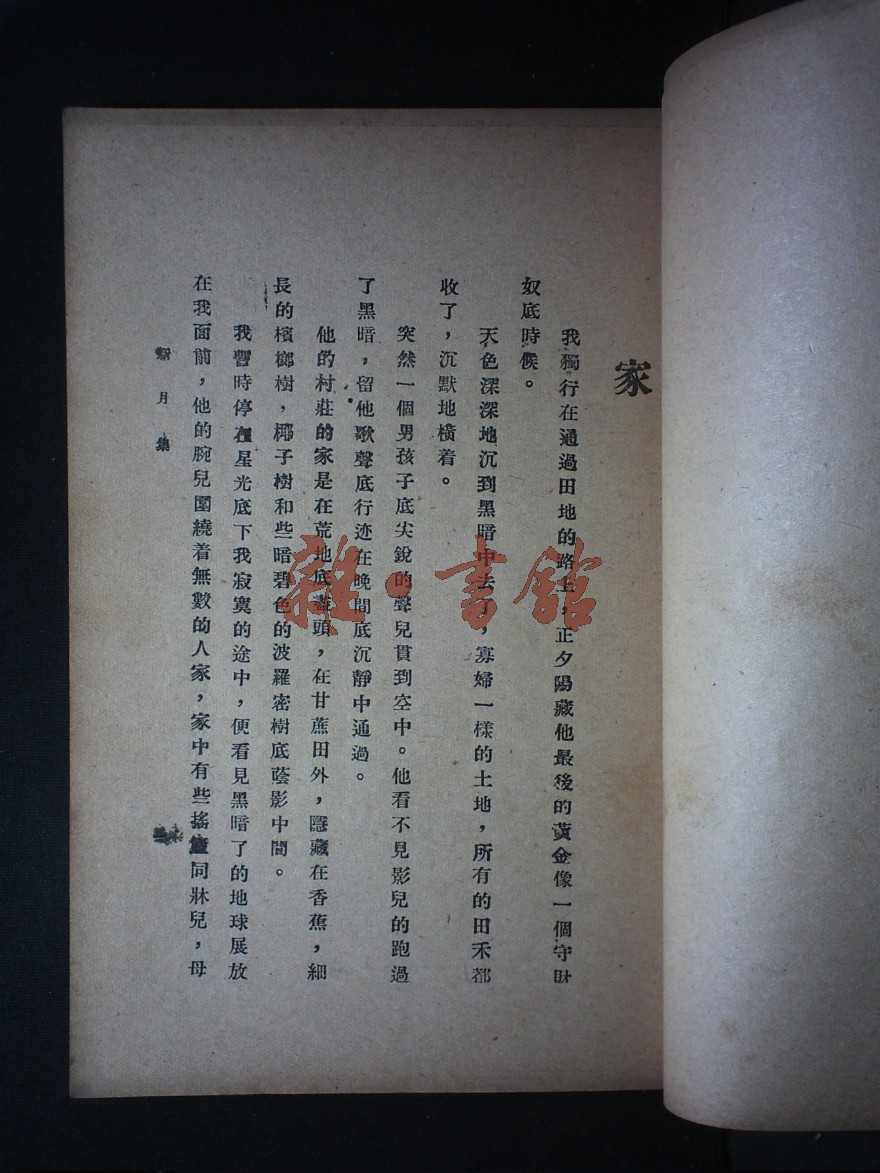 家
我獨行在通過田地的路上，正夕陽藏他最後的黃金像一個守財
奴底時候。
天色深深地沉到黑暗中去了，寡婦一樣的土地，所有的田禾都
收了，沉默地橫着。
突然一個男孩子底尖銳的聲兒貫到空中。他看不見影兒的跑過
了黑暗，留他歌聲底行迹在晚間底沉靜中通過。
他的村莊的家是在荒地底盡頭，在甘蔗田外，隱藏在香蕉，細
長的檳榔樹，椰子樹和些暗碧色的波羅密樹底蔭影中間。
我暫時停在星光底下我寂寞的途中，便看見黑暗了的地球展放
在我面前，他的腕兒圍繞着無數的人家，家中有些搖籃同牀兒，母
新月集
雜·書館